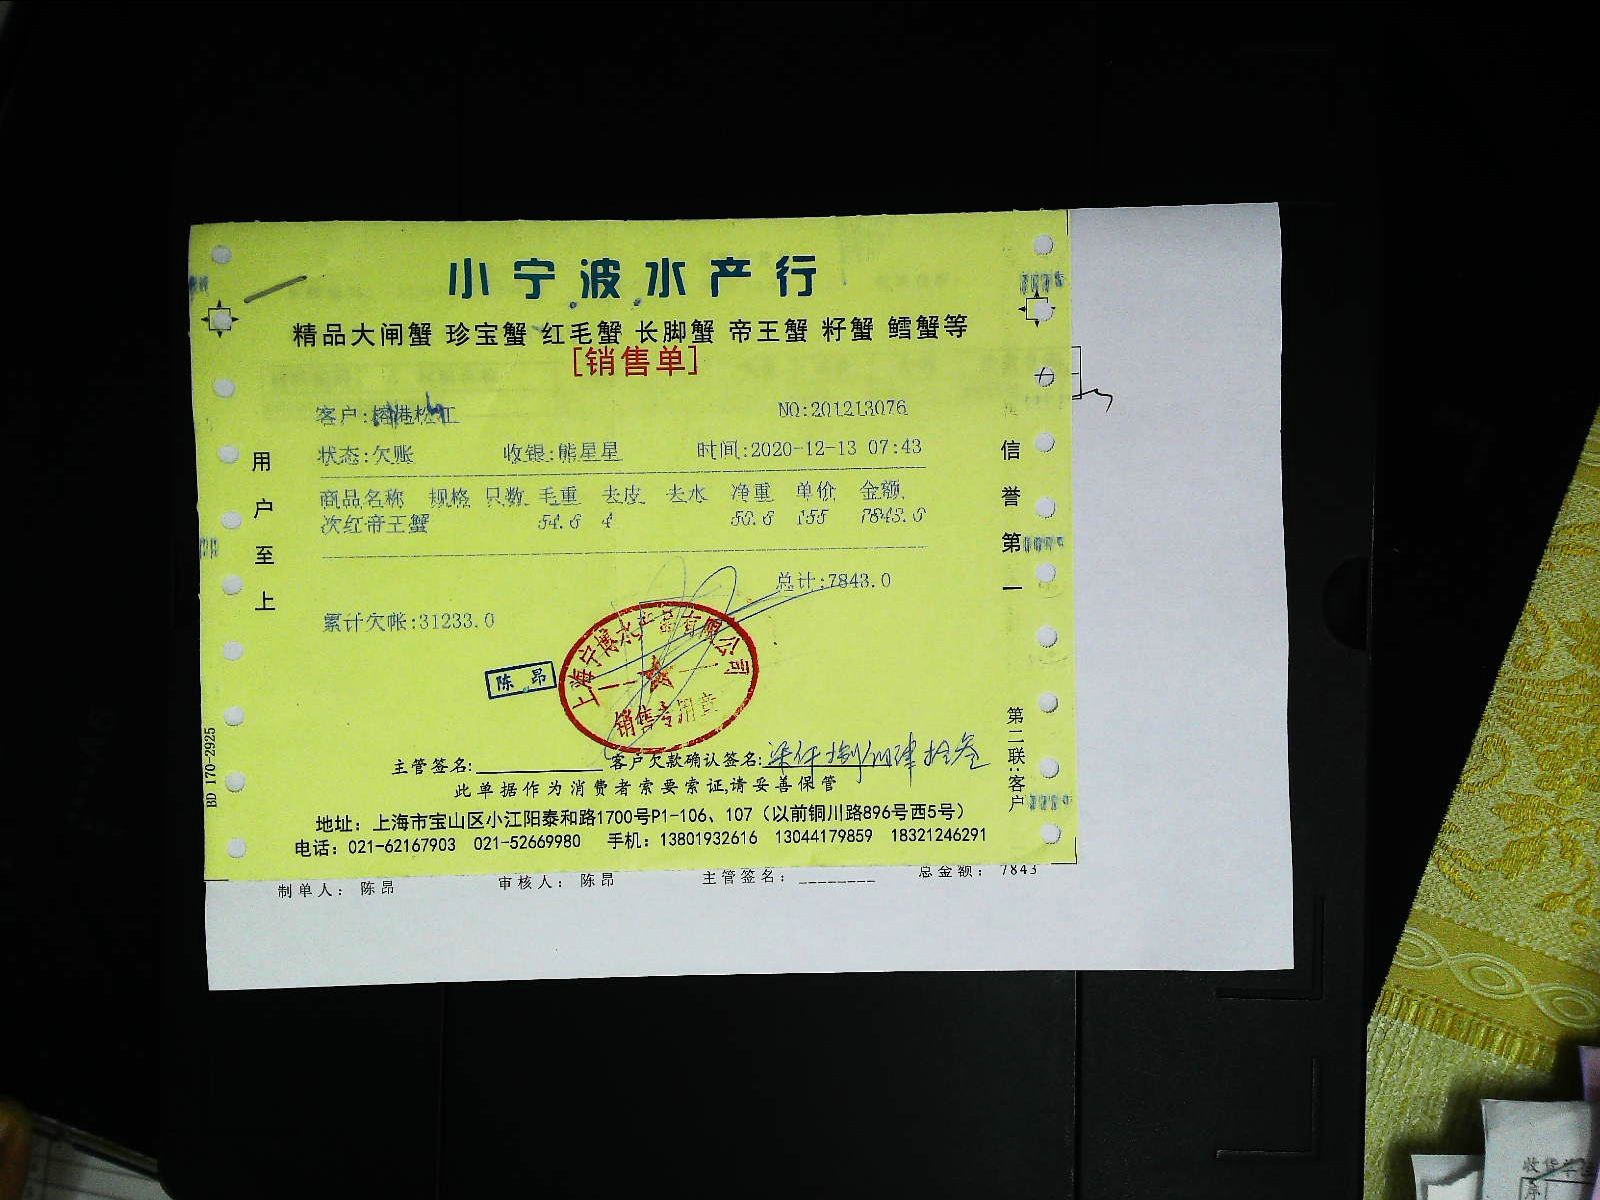 小宁波水产行
精品大闸蟹 珍宝蟹 红毛蟹 长脚蟹 帝王蟹 籽蟹 鳕蟹等
[销售单]
客户:榕港松江 NO:201213076
状态:欠账 收银:熊星星 时间:2020-12-13 07:43
商品名称 规格 只数 毛重 去皮 去水 净重 单价 金额
次红帝王蟹 54.6 4 50.6 155 7843.0
总计:7843.0
累计欠帐:31233.0
陈昂
上海宁博水产品有限公司
销售专用章
用户至上
信誉第一
第二联:客户
BD 170-2925
主管签名: 客户欠款确认签名:柒仟捌佰肆拾叁
此单据作为消费者索要索证,请妥善保管
地址：上海市宝山区小江阳泰和路1700号P1-106、107（以前铜川路896号西5号）
电话：021-62167903 021-52669980 手机：13801932616 13044179859 18321246291
制单人： 陈昂 审核人： 陈昂 主管签名：________ 总金额： 7843